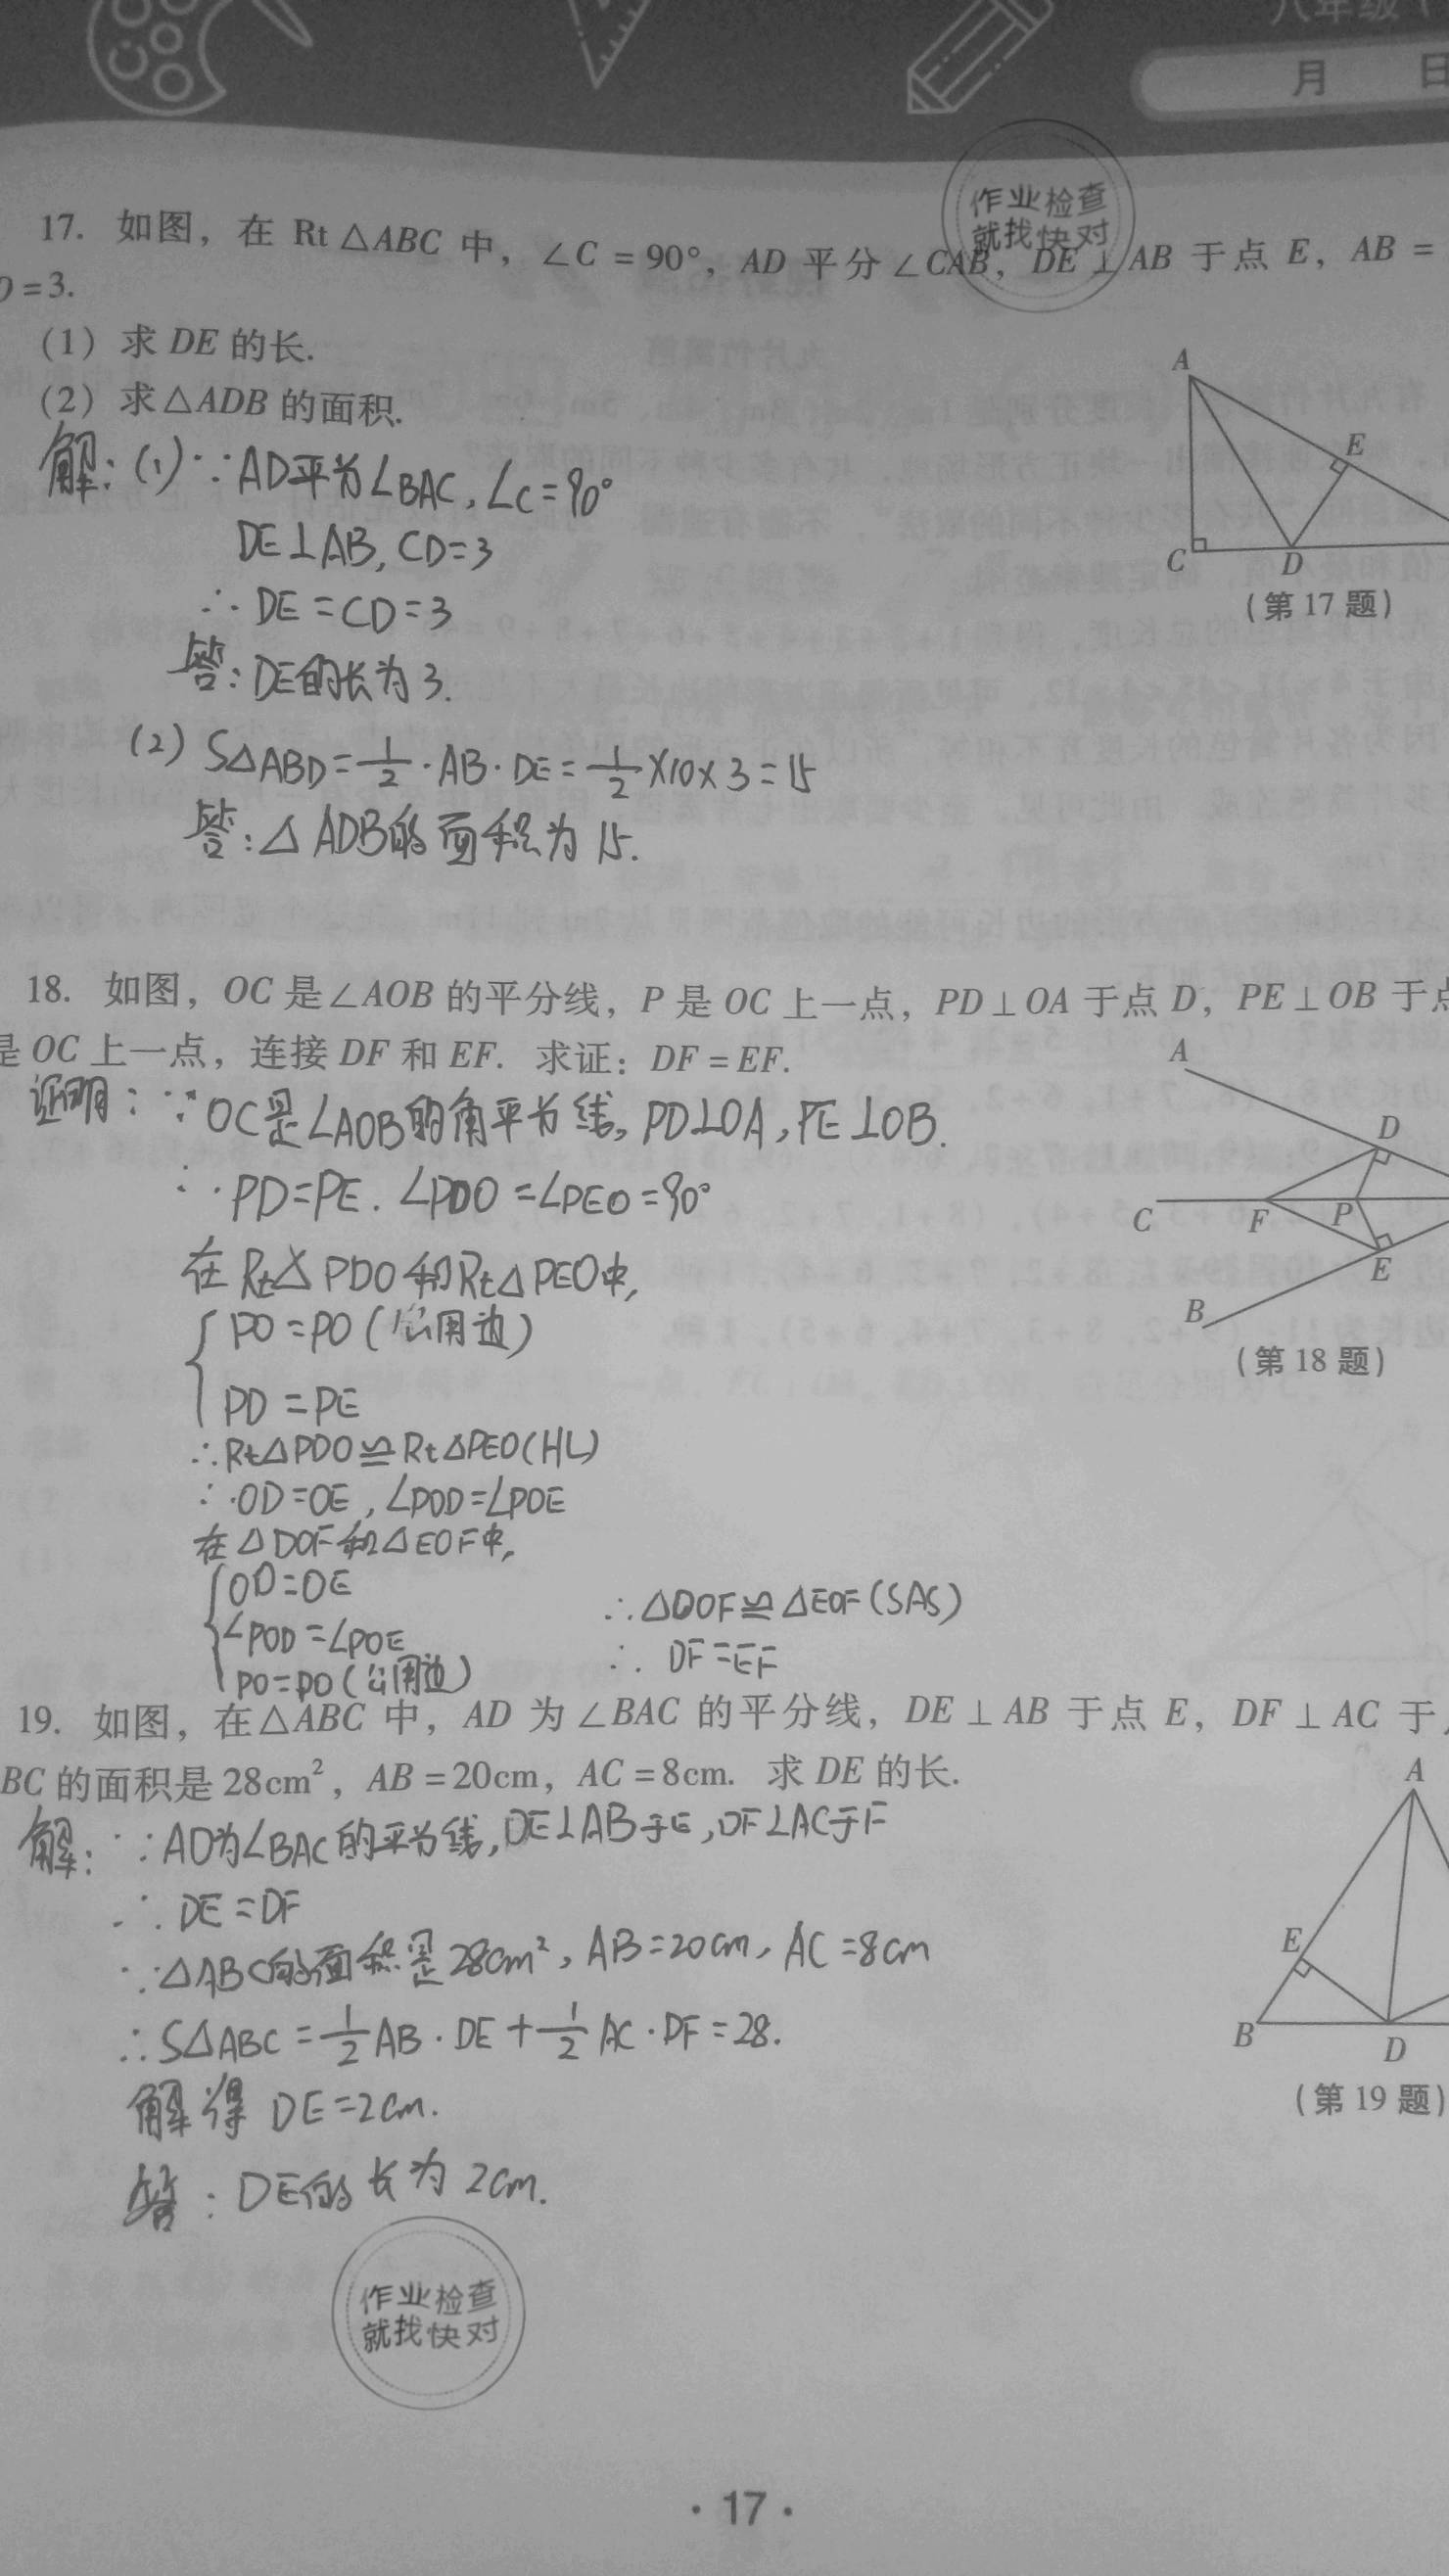 八年级（
月 日
作业检查
就找快对
17. 如图，在 Rt △ABC 中，∠C = 90°，AD 平分∠CAB，DE⊥AB 于点 E，AB =
=3.
(1) 求 DE 的长.
(2) 求△ADB 的面积.
A
E
C D
(第 17 题)
解：(1)∵AD平分∠BAC，∠C=90°
DE⊥AB，CD=3
∴ DE=CD=3
答：DE的长为3.
(2) S△ABD=1/2·AB·DE=1/2×10×3=15
答：△ADB的面积为15.
18. 如图，OC 是∠AOB 的平分线，P 是 OC 上一点，PD⊥OA 于点 D，PE⊥OB 于点
是 OC 上一点，连接 DF 和 EF. 求证：DF = EF.
A
D
C F P
E
B
(第 18 题)
证明：∵OC是∠AOB的角平分线，PD⊥OA，PE⊥OB.
∴PD=PE. ∠PDO=∠PEO=90°
在Rt△PDO和Rt△PEO中，
PO=PO（公用边）
PD=PE
∴Rt△PDO≌Rt△PEO(HL)
∴OD=OE，∠POD=∠POE
在△DOF和△EOF中，
OD=OE
∠POD=∠POE
PO=PO（公用边）
∴△DOF≌△EOF(SAS)
∴ DF=EF
19. 如图，在△ABC 中，AD 为∠BAC 的平分线，DE⊥AB 于点 E，DF⊥AC 于
BC 的面积是 28cm²，AB = 20cm，AC = 8cm. 求 DE 的长.
A
E
B D
(第 19 题)
解：∵AD为∠BAC的平分线，DE⊥AB于E，DF⊥AC于F
∴DE=DF
∵△ABC的面积是28cm²，AB=20cm，AC=8cm
∴S△ABC=1/2AB·DE+1/2AC·DF=28.
解得 DE=2cm.
答：DE的长为2cm.
作业检查
就找快对
·17·